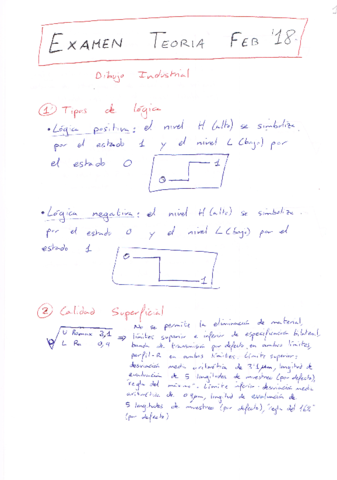 1
EXAMEN TEORIA FEB '18.
Dibujo Industrial
① Tipos de lógica
• Lógica positiva: el nivel H (alto) se simboliza
por el estado 1 y el nivel L (bajo) por
el estado 0
0 1
• Lógica negativa: el nivel H (alto) se simboliza
por el estado 0 y el nivel L (bajo) por el
estado 1
0 1
② Calidad Superficial
U Ramax 3,1
L Ra 0,9
⇒ No se permite la eliminación de material,
límites superior e inferior de especificación bilateral,
banda de transmisión por defecto en ambos límites,
perfil-R en ambos límites. Límite superior:
desviación media aritmética de 3'1 µm, longitud de
evaluación de 5 longitudes de muestreo (por defecto),
"regla del máximo". Límite inferior: desviación media
aritmética de 0'9 µm, longitud de evaluación de
5 longitudes de muestreo (por defecto), "regla del 16%"
(por defecto)